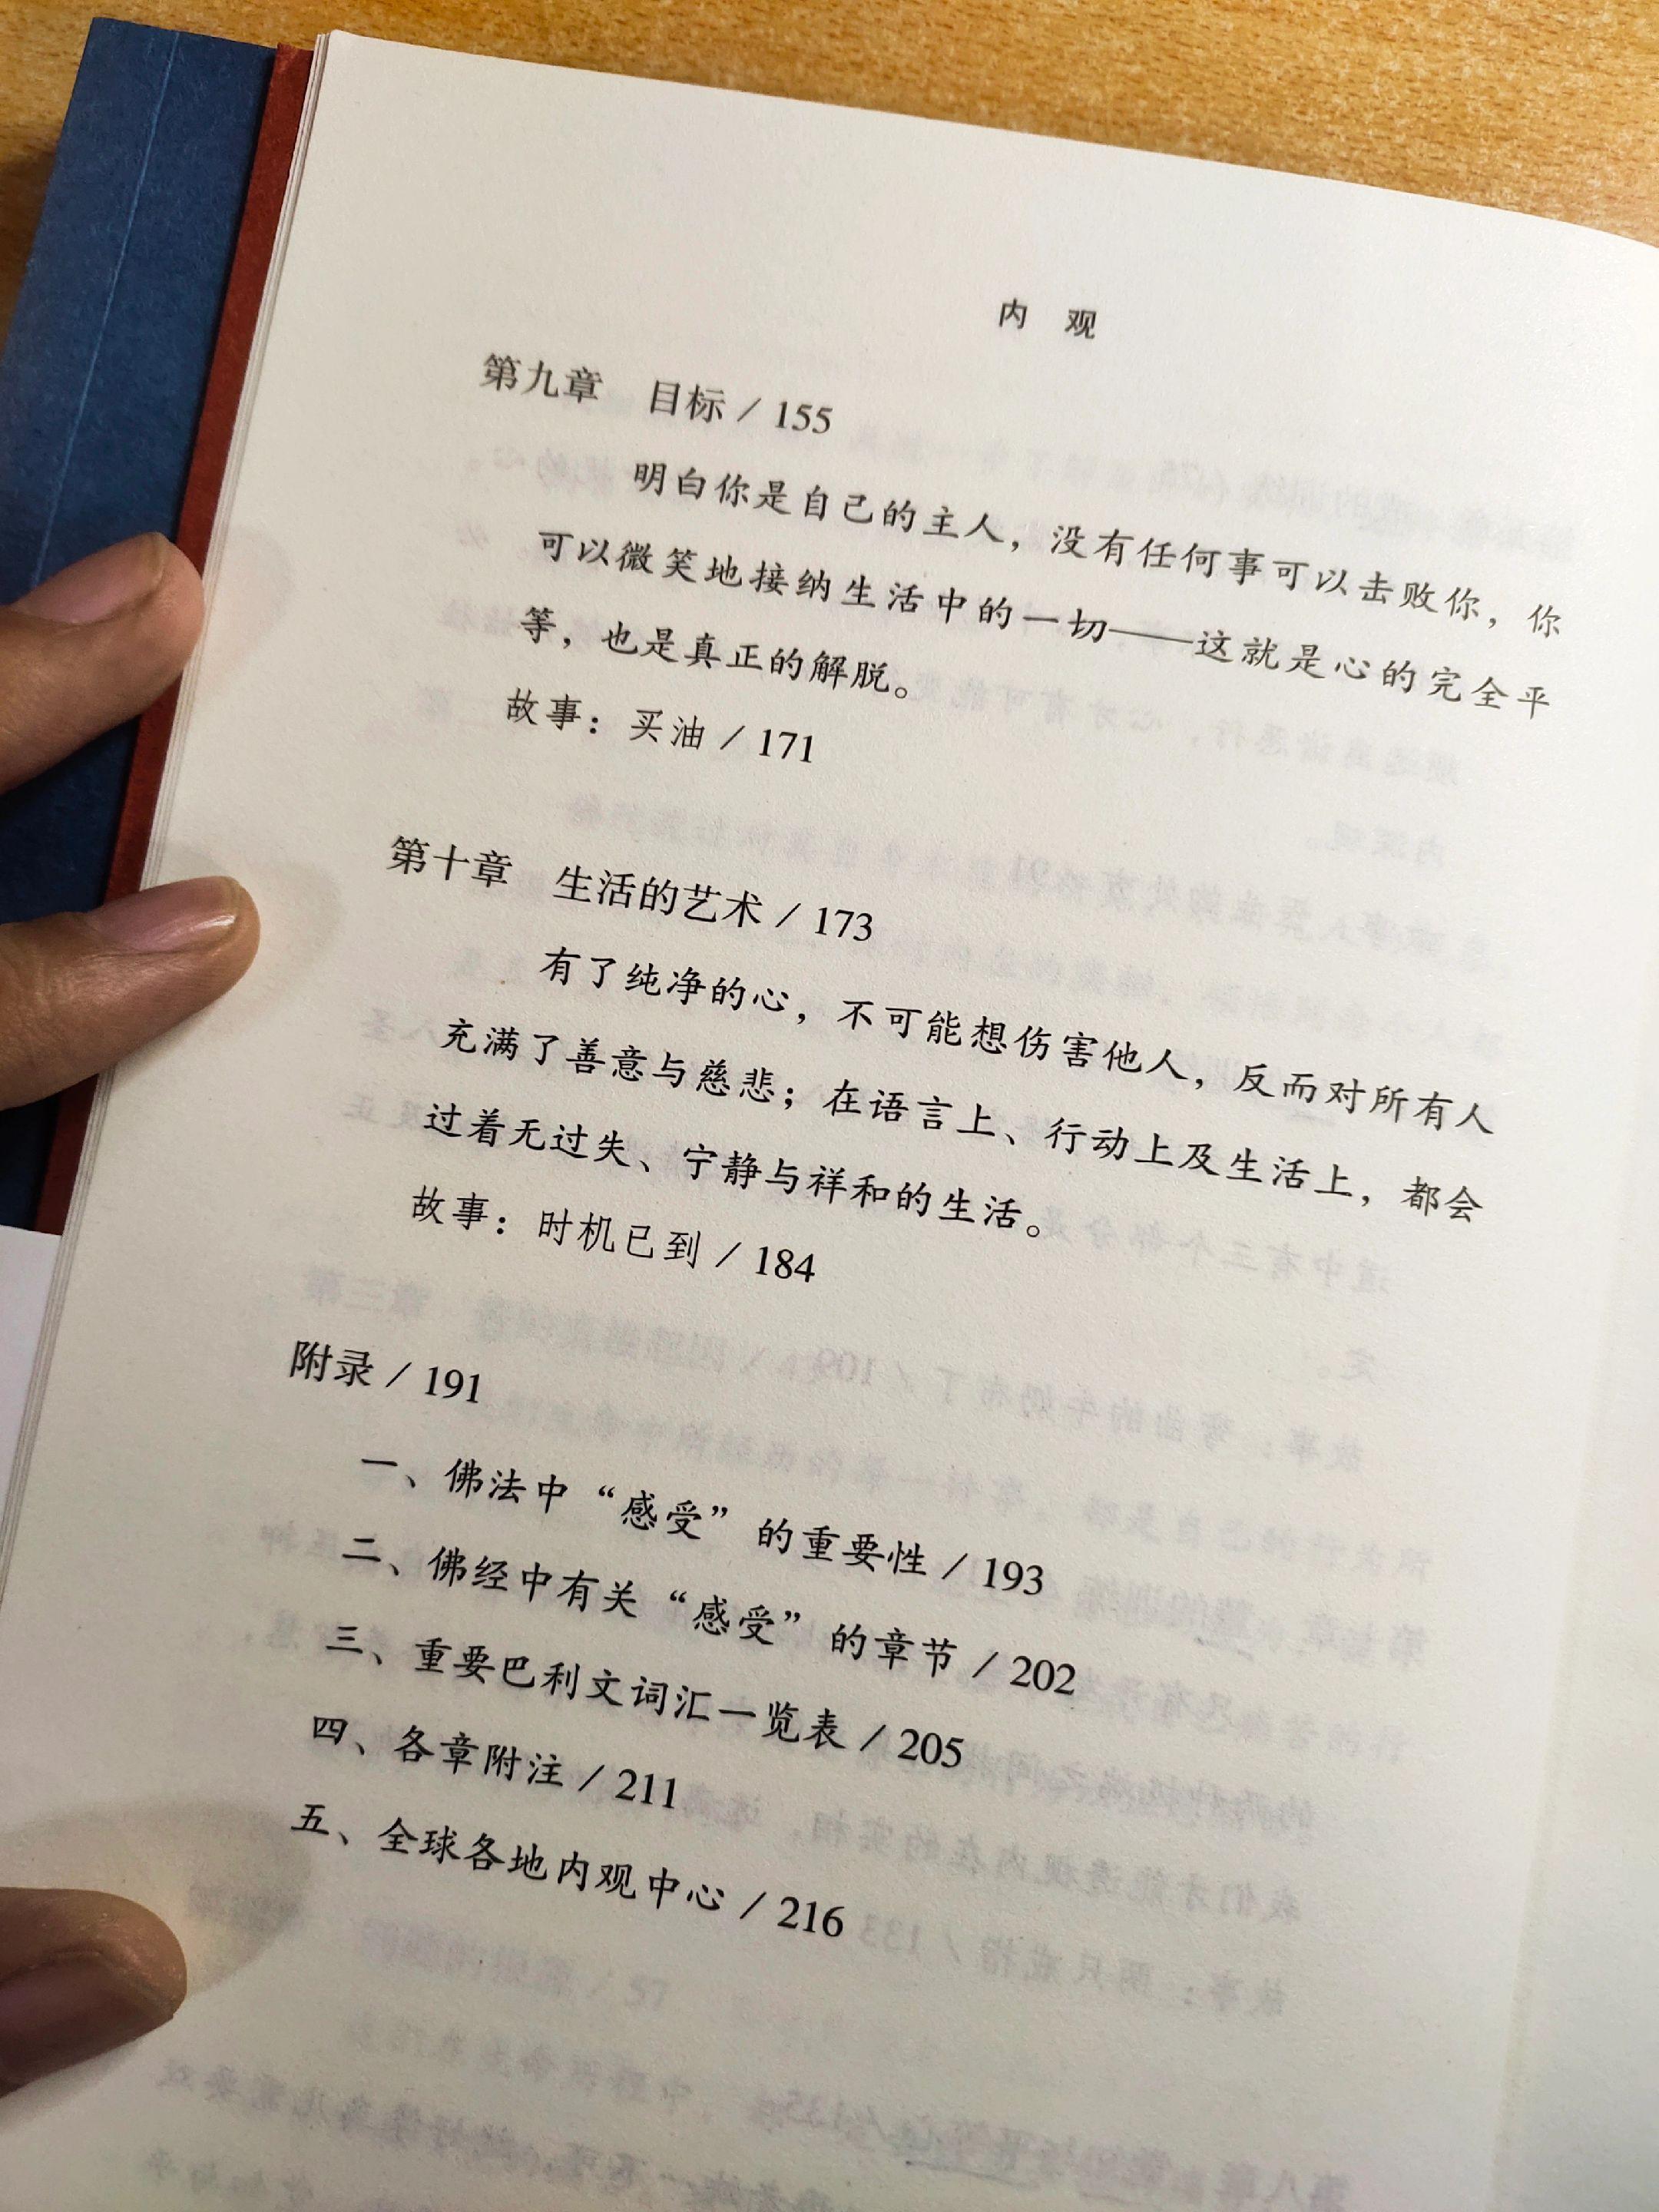 内 观
第九章 目标 / 155
明白你是自己的主人，没有任何事可以击败你，你
可以微笑地接纳生活中的一切——这就是心的完全平
等，也是真正的解脱。
故事：买油 / 171
第十章 生活的艺术 / 173
有了纯净的心，不可能想伤害他人，反而对所有人
充满了善意与慈悲；在语言上、行动上及生活上，都会
过着无过失、宁静与祥和的生活。
故事：时机已到 / 184
附录 / 191
一、佛法中“感受”的重要性 / 193
二、佛经中有关“感受”的章节 / 202
三、重要巴利文词汇一览表 / 205
四、各章附注 / 211
五、全球各地内观中心 / 216